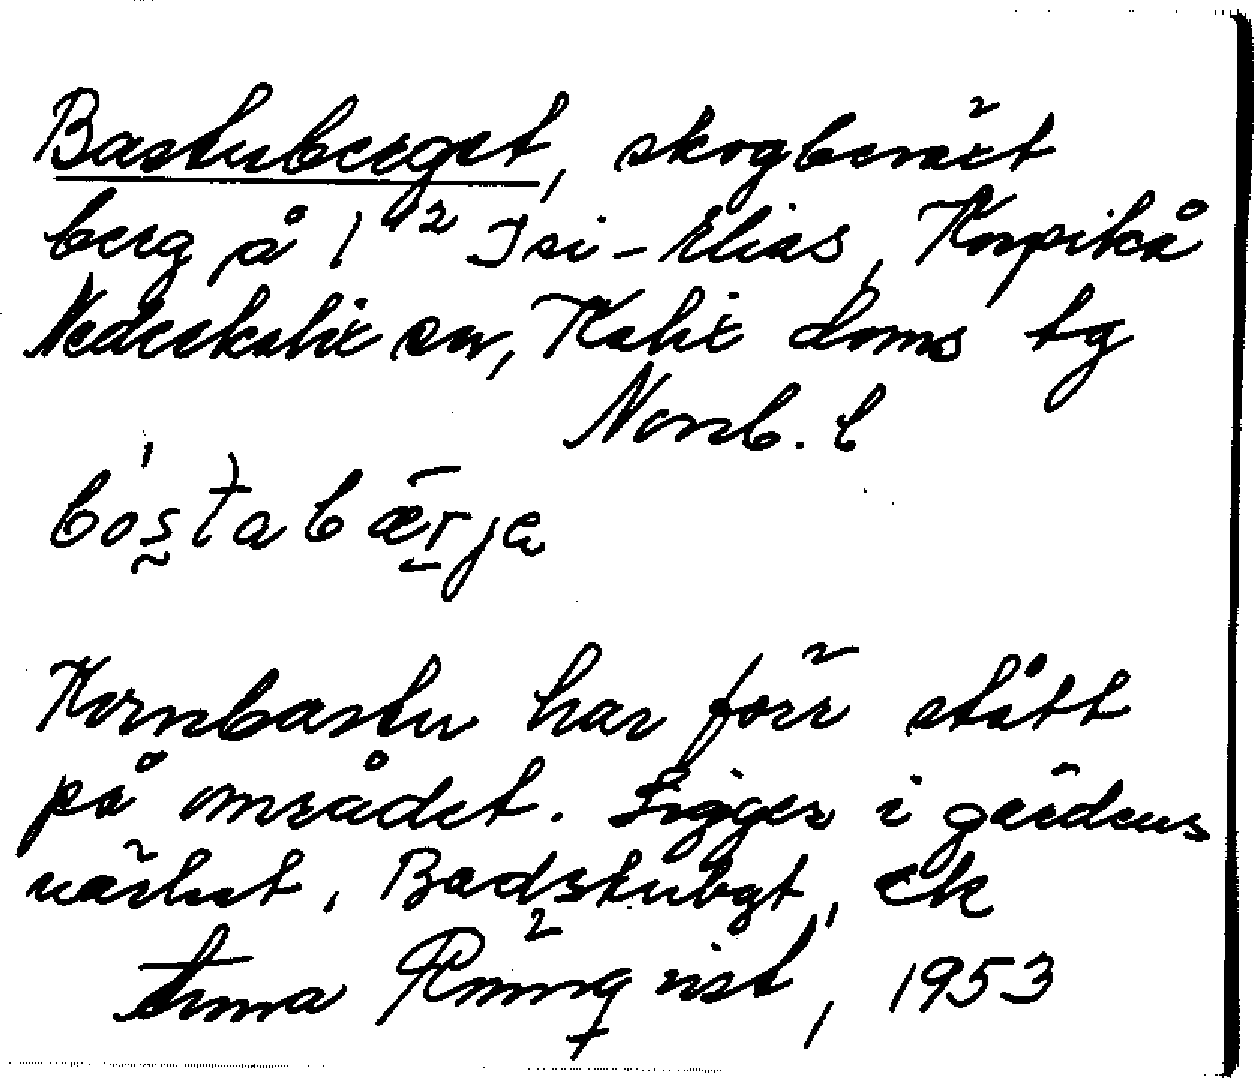 Bastuberget, skogbevuxet
berg å 1¹² Isi-Elias, Korpikå
Nederkalix sn, Kalix doms tg
Norrb. l
bástabærje
Kornbastu har förr stått
på området. Ligger i gärdens
närhet. Badstubgt, ek
Anna Rönnqvist, 1953